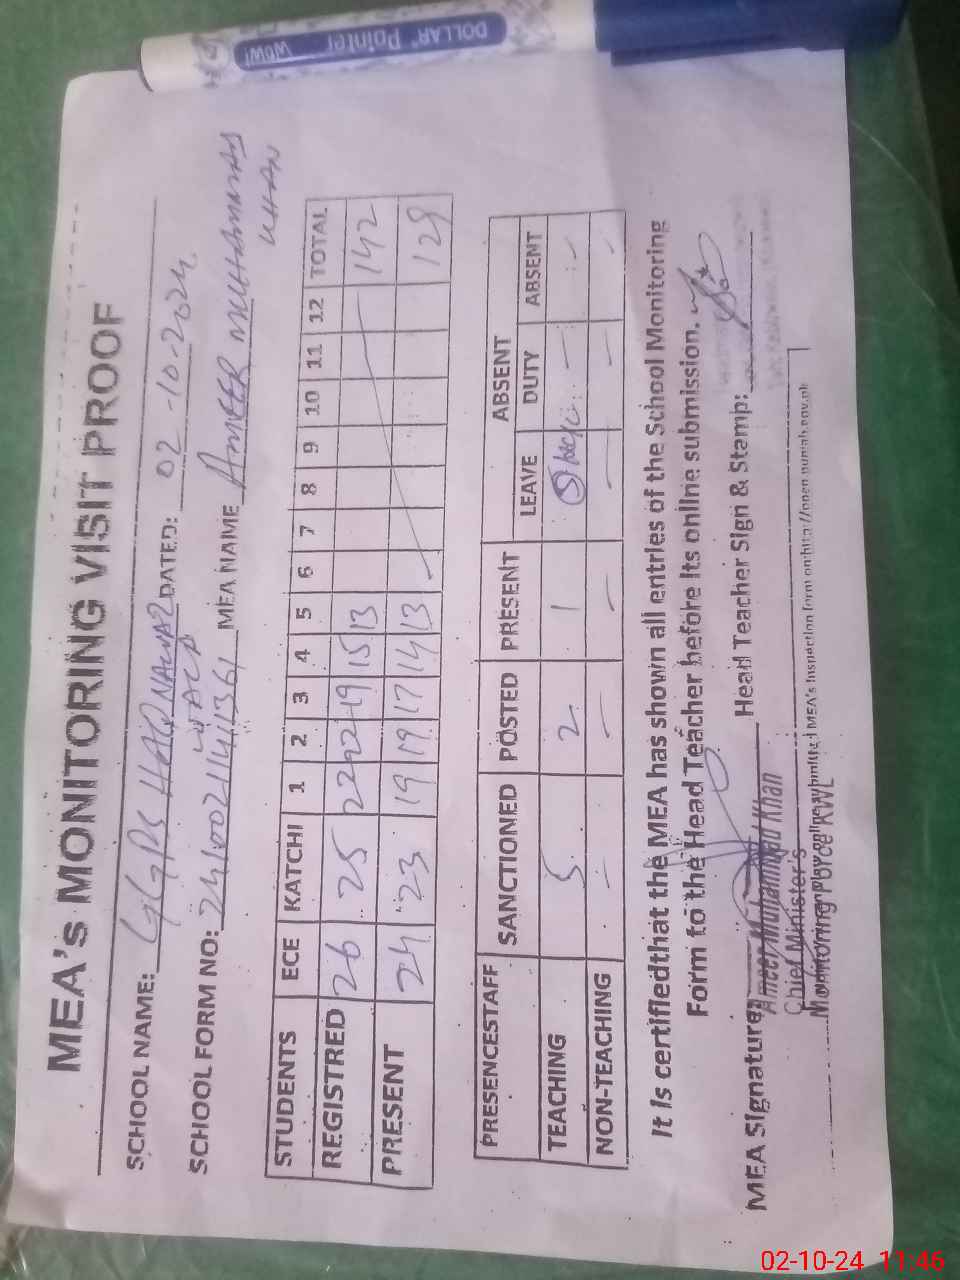 DOLLAR Pointer WOW!
MEA's MONITORING VISIT PROOF
SCHOOL NAME: GGPS DATED: 02-10-2024
SCHOOL FORM NO: MEA NAME AMEER MUHAMMAD
KHAN
STUDENTS ECE KATCHI 1 2 3 4 5 6 7 8 9 10 11 12 TOTAL
REGISTRED 26 25 22 22 19 15 13 142
PRESENT 24 23 19 19 17 14 13 129
ABSENT
PRESENCESTAFF SANCTIONED POSTED PRESENT LEAVE DUTY ABSENT
TEACHING 5 2 1 — -
NON-TEACHING — — — — — -
It is certifiedthat the MEA has shown all entries of the School Monitoring
Form to the Head Teacher before its online submission.
MEA Signature: Head Teacher Sign & Stamp:
Ameer Muhammad Khan
Chief Minister's
Monitoring Force RWL
MEA's inspection form on:http://open.punjab.gov.pk
02-10-24 11:46